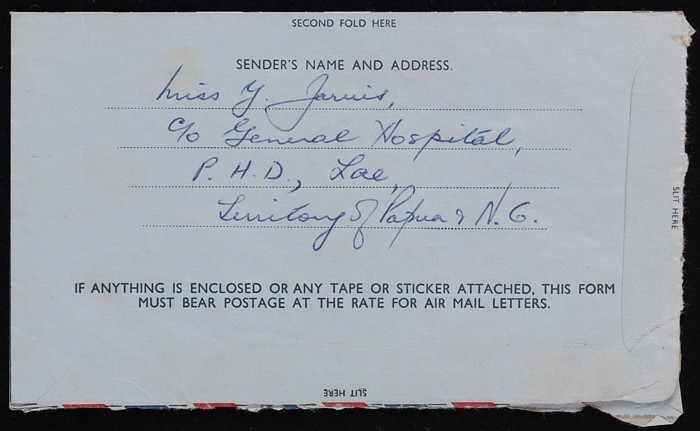 SECOND FOLD HERE
SENDER'S NAME AND ADDRESS.
Miss Y. Jarvis,
C/o General Hospital,
P. H. D., Lae,
Territory of Papua & N. G.
SLIT HERE
IF ANYTHING IS ENCLOSED OR ANY TAPE OR STICKER ATTACHED, THIS FORM
MUST BEAR POSTAGE AT THE RATE FOR AIR MAIL LETTERS.
SLIT HERE